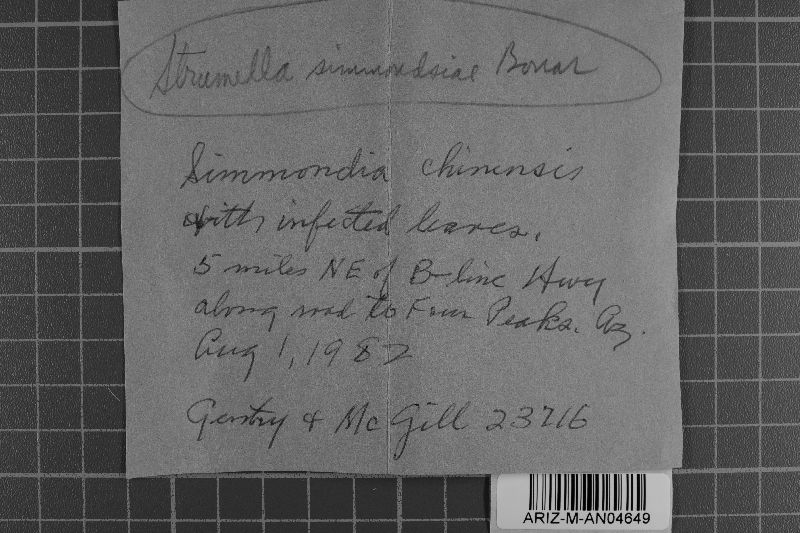 Strumella simmondsiae Bonar
Simmondia chinensis
with infected leaves.
5 miles NE of B-line Hwy
along road to Four Peaks. Az.
Aug 1, 1982
Gentry & McGill 23716
ARIZ-M-AN04649